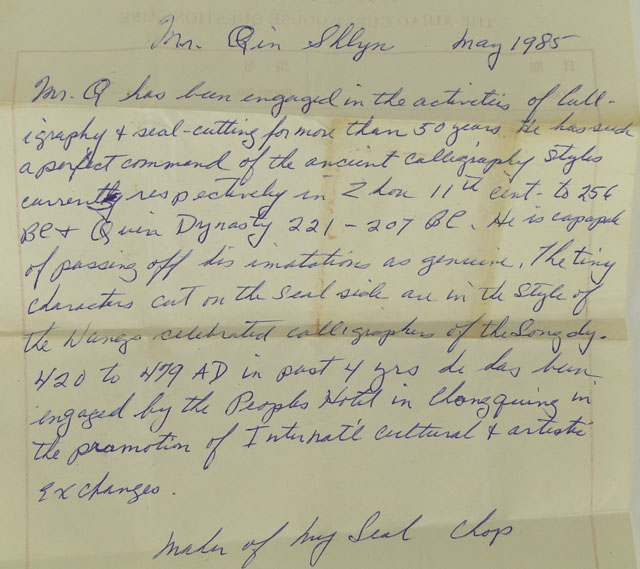 THE XINAO GUESTHOUSE QUESTIONNAIRE
Mr. Qin Shlyn May 1985
Mr. Q has been engaged in the activities of Call-
igraphy & seal-cutting for more than 50 years. He has such
a perfect command of the ancient calligraphy styles
currently respectively in Zhou 11th cent- to 256
BC & Quin Dynasty 221-207 BC. He is capapale
of passing off his imatations as genuine. The tiny
characters cut on the Seal side are in the Style of
the Wangs celebrated calligraphers of the Song dy.
420 to 479 AD in past 4 yrs he has been
engaged by the Peoples Hotel in Chongquing in
the promotion of Internat'l cultural & artistic
exchanges.
Maker of my Seal Chop